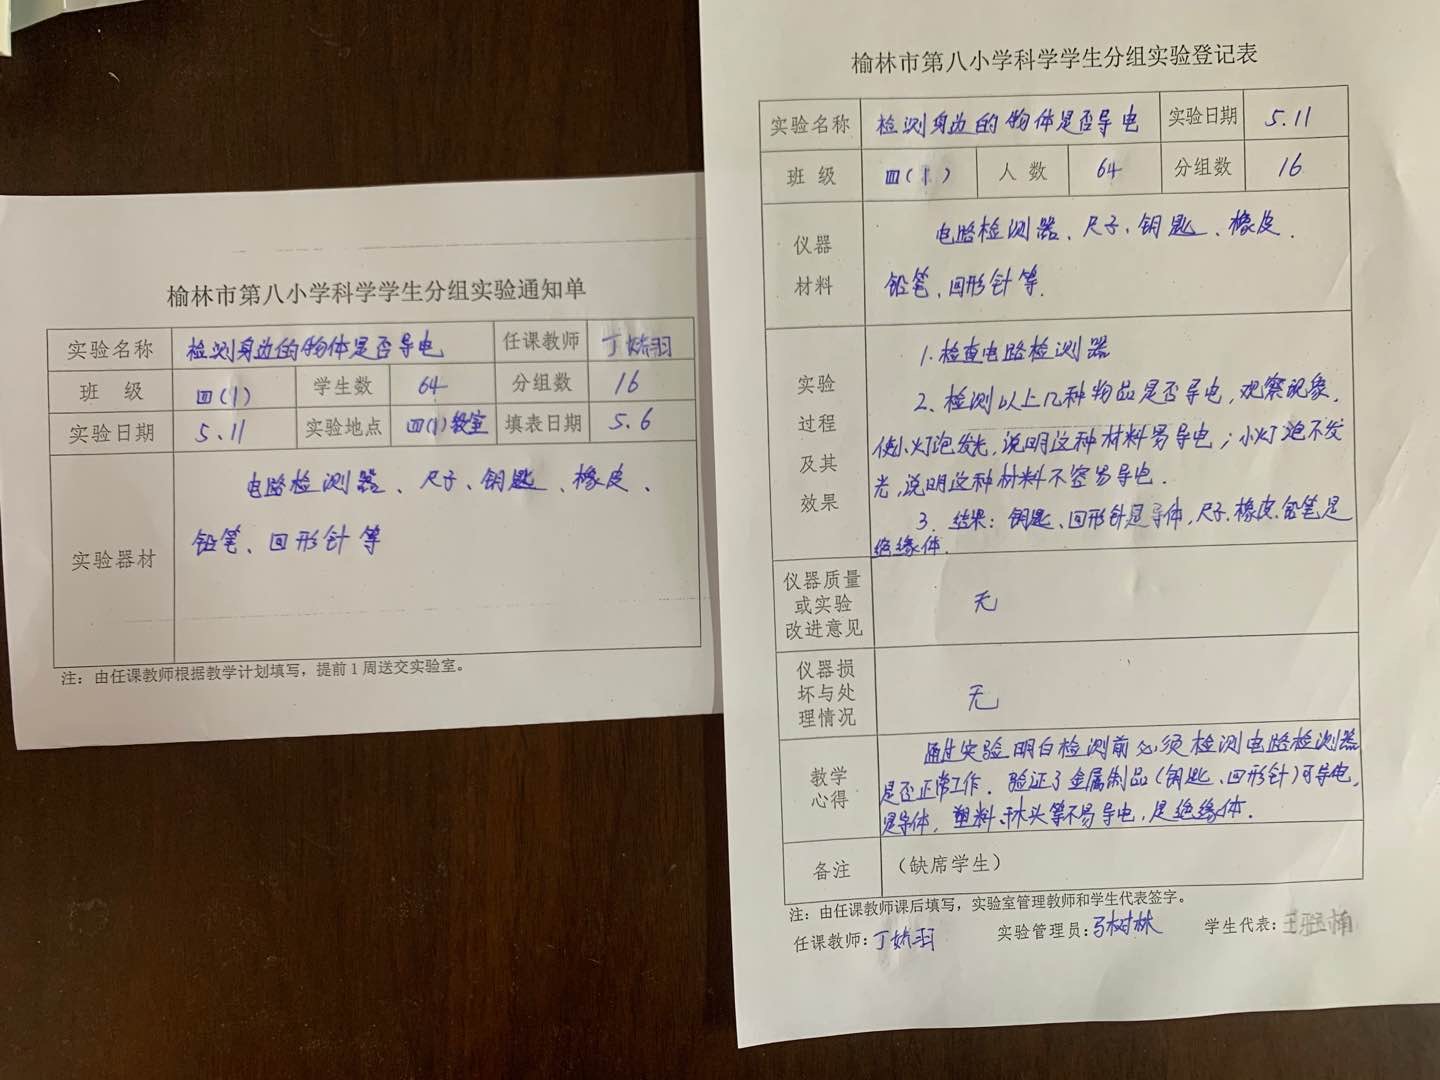 榆林市第八小学科学学生分组实验通知单
实验名称 检测身边的物体是否导电 任课教师 丁娇羽
班 级 四(1) 学生数 64 分组数 16
实验日期 5.11 实验地点 四(1)教室 填表日期 5.6
实验器材
电路检测器、尺子、钥匙、橡皮、
铅笔、回形针等
注：由任课教师根据教学计划填写，提前1周送交实验室。
榆林市第八小学科学学生分组实验登记表
实验名称 检测身边的物体是否导电 实验日期 5.11
班 级 四(1) 人 数 64 分组数 16
仪器
材料
电路检测器、尺子、钥匙、橡皮、
铅笔、回形针等.
实验
过程
及其
效果
1.检查电路检测器
2、检测以上几种物品是否导电,观察现象,
使小灯泡发光,说明这种材料易导电;小灯泡不发
光,说明这种材料不容易导电.
3. 结果:钥匙、回形针是导体,尺子、橡皮、铅笔是
绝缘体.
仪器质量
或实验
改进意见
无
仪器损
坏与处
理情况
无
教学
心得
通过实验明白检测前必须检测电路检测器
是否正常工作. 验证了金属制品(钥匙、回形针)可导电,
是导体, 塑料、木头等不易导电,是绝缘体.
备注 （缺席学生）
注：由任课教师课后填写，实验室管理教师和学生代表签字。
任课教师:丁娇羽 实验管理员:弓树林 学生代表: